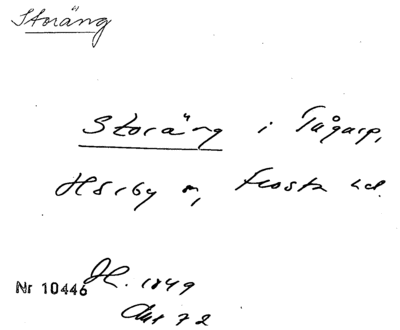 Storäng
Storäng i Tågarp,
Hörby sn, Frosta hd.
Nr 10446 JH. 1849
Akt 72